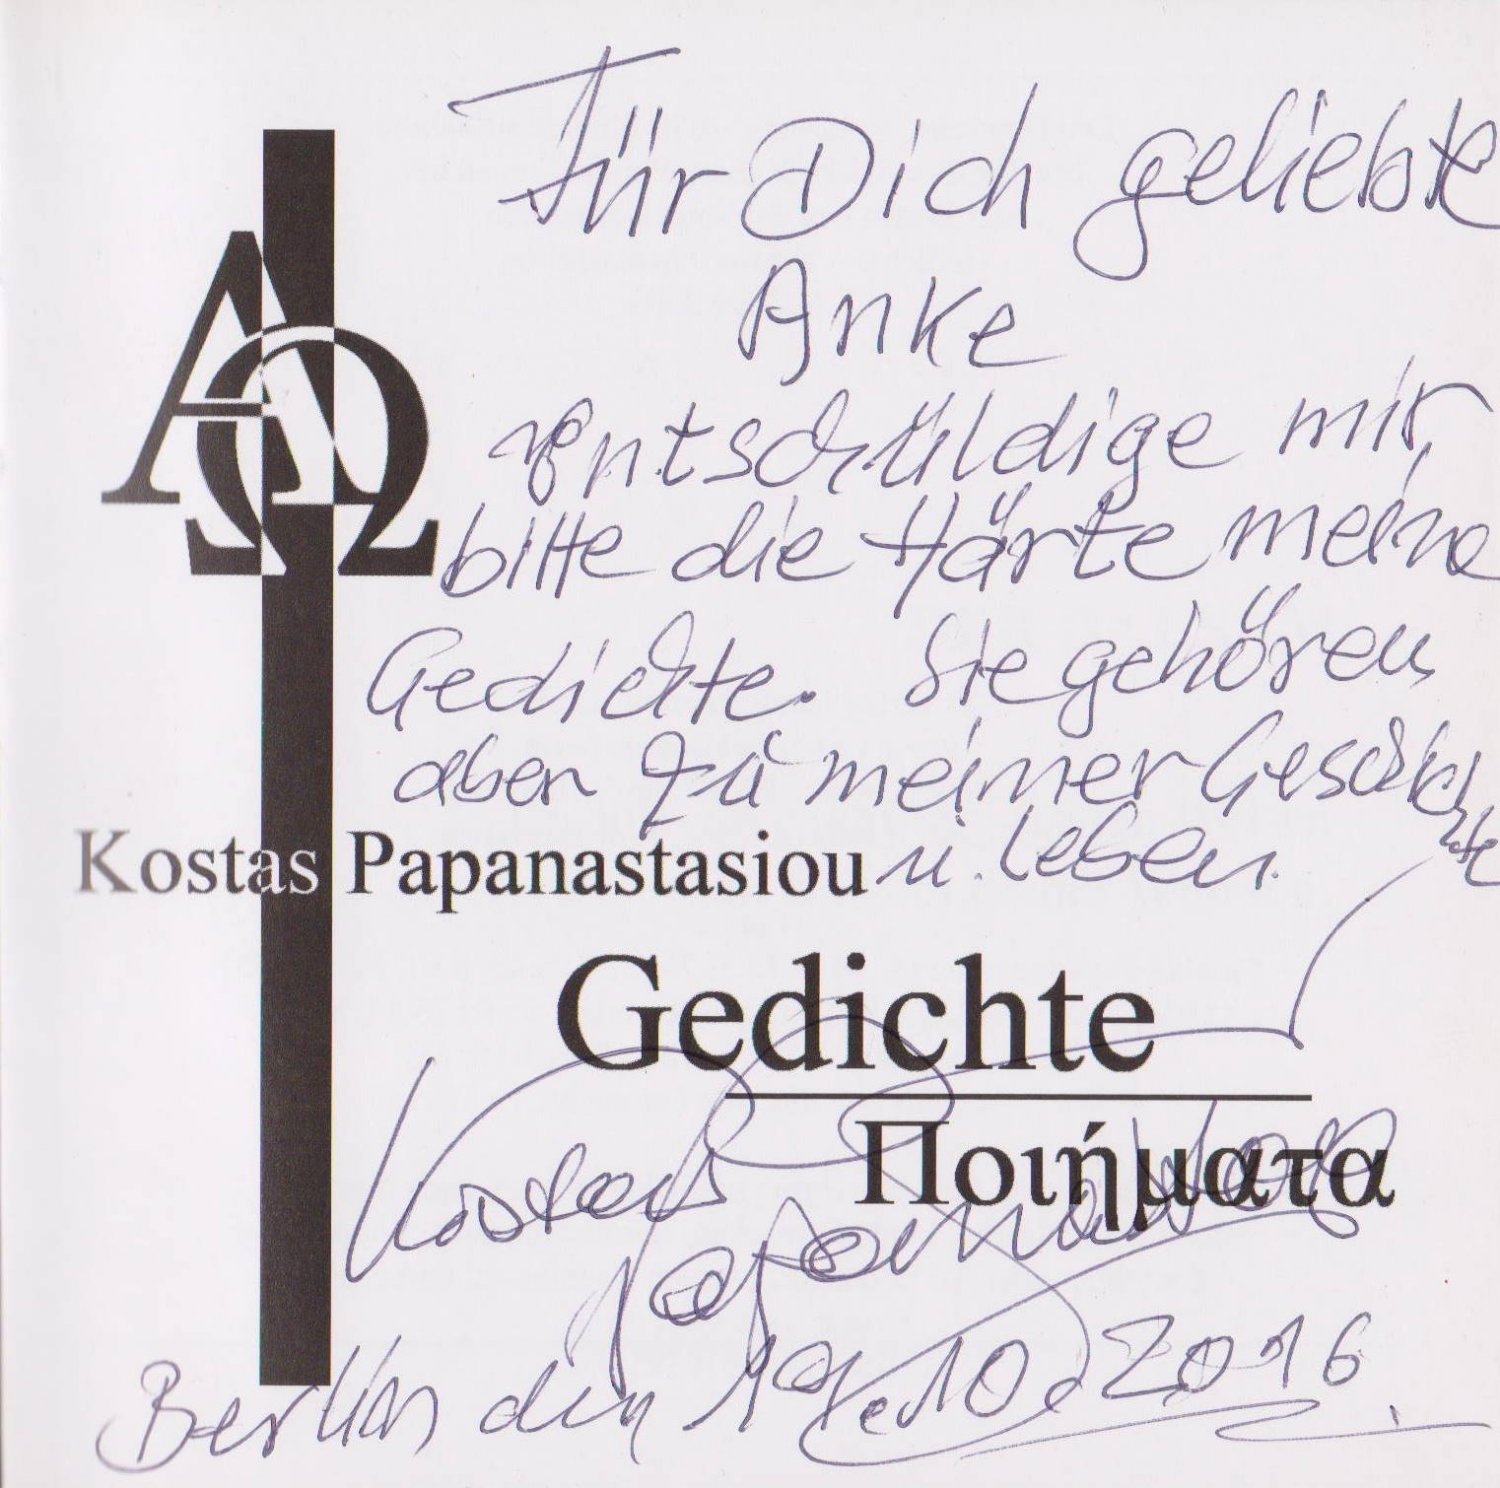 Für Dich geliebte
Anke
entschüldige mir
bitte die Härte meine
Gedichte. Sie gehören
aber zu meiner Geschichte
u. Leben.
ΑΩ
Kostas Papanastasiou
Gedichte
Ποιήματα
Kostas
Papanastasiou
Berlin den .10.2016